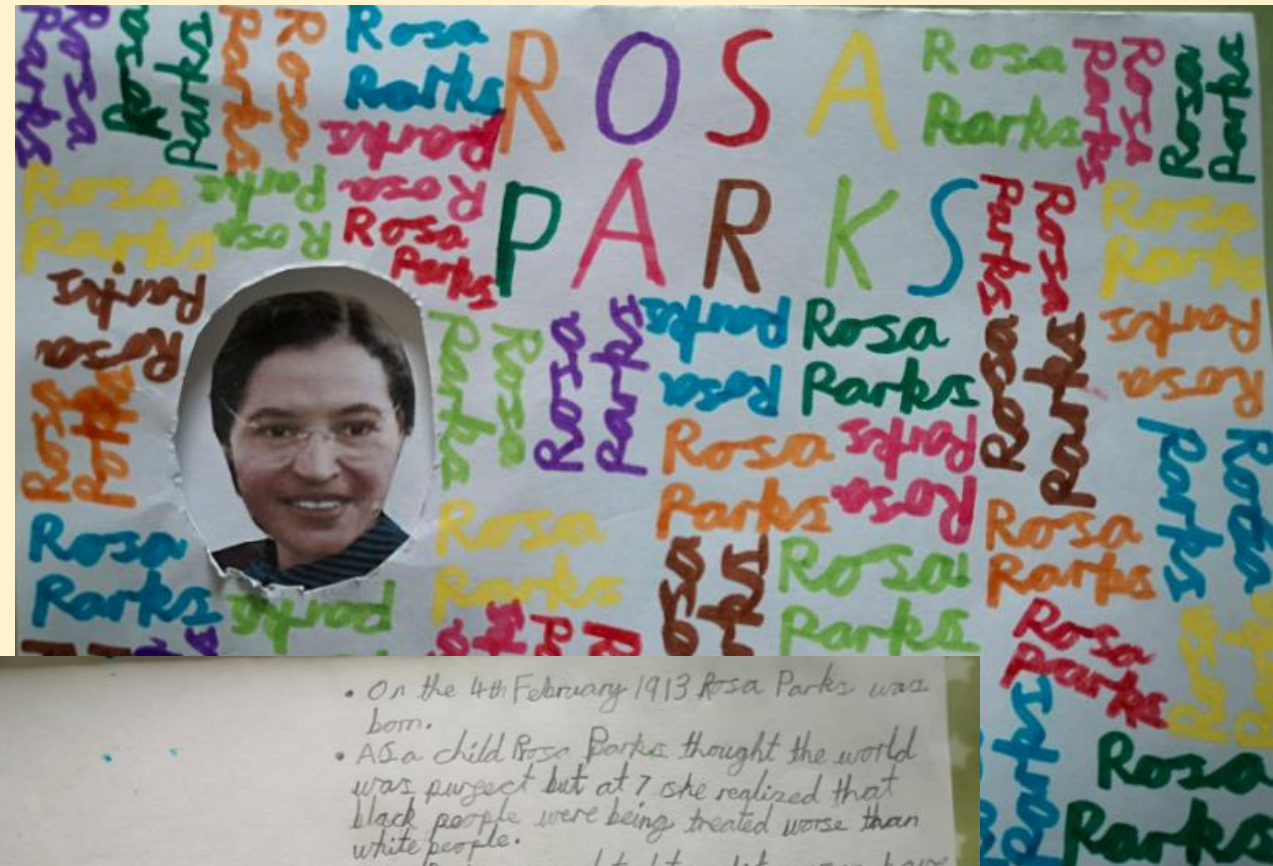 ROSA
PARKS
Rosa
Parks
Rosa
Parks
Rosa
Parks
Rosa
Parks
Rosa
Parks
Rosa
Parks
Rosa
Parks
Rosa
Parks
Rosa
Parks
Rosa
Parks
Rosa
Parks
Rosa
Parks
Rosa
Parks
Rosa
Parks
Rosa
Parks
Rosa
Parks
Rosa
Parks
Rosa
Parks
Rosa
Parks
Rosa
Parks
Rosa
Parks
Rosa
Parks
Rosa
Parks
Rosa
Parks
Rosa
Parks
Rosa
Parks
Rosa
Parks
Rosa
Parks
Parks
Rosa
Parks
Rosa
Parks
Parks
Rosa
Parks
• On the 4th February 1913 Rosa Parks was
born.
• As a child Rosa Parks thought the world
was purgect but at 7 she realized that
black people were being treated worse than
white people.